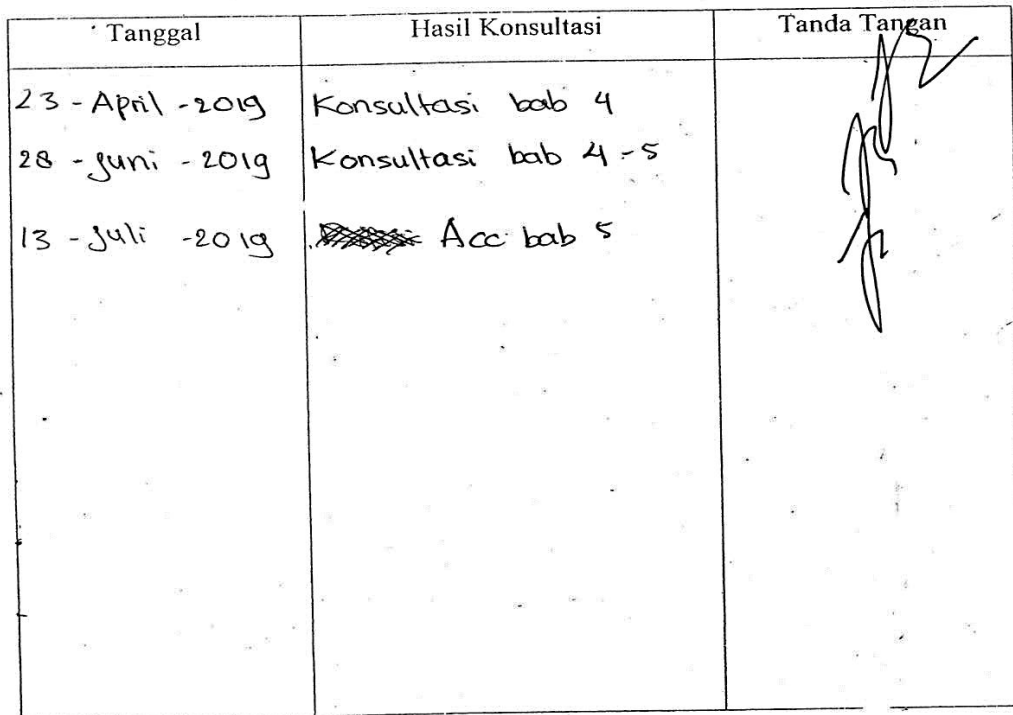 Tanggal Hasil Konsultasi Tanda Tangan
23 - April - 2019 Konsultasi bab 4
28 - Juni - 2019 Konsultasi bab 4 - 5
13 - Juli - 2019 Acc bab 5